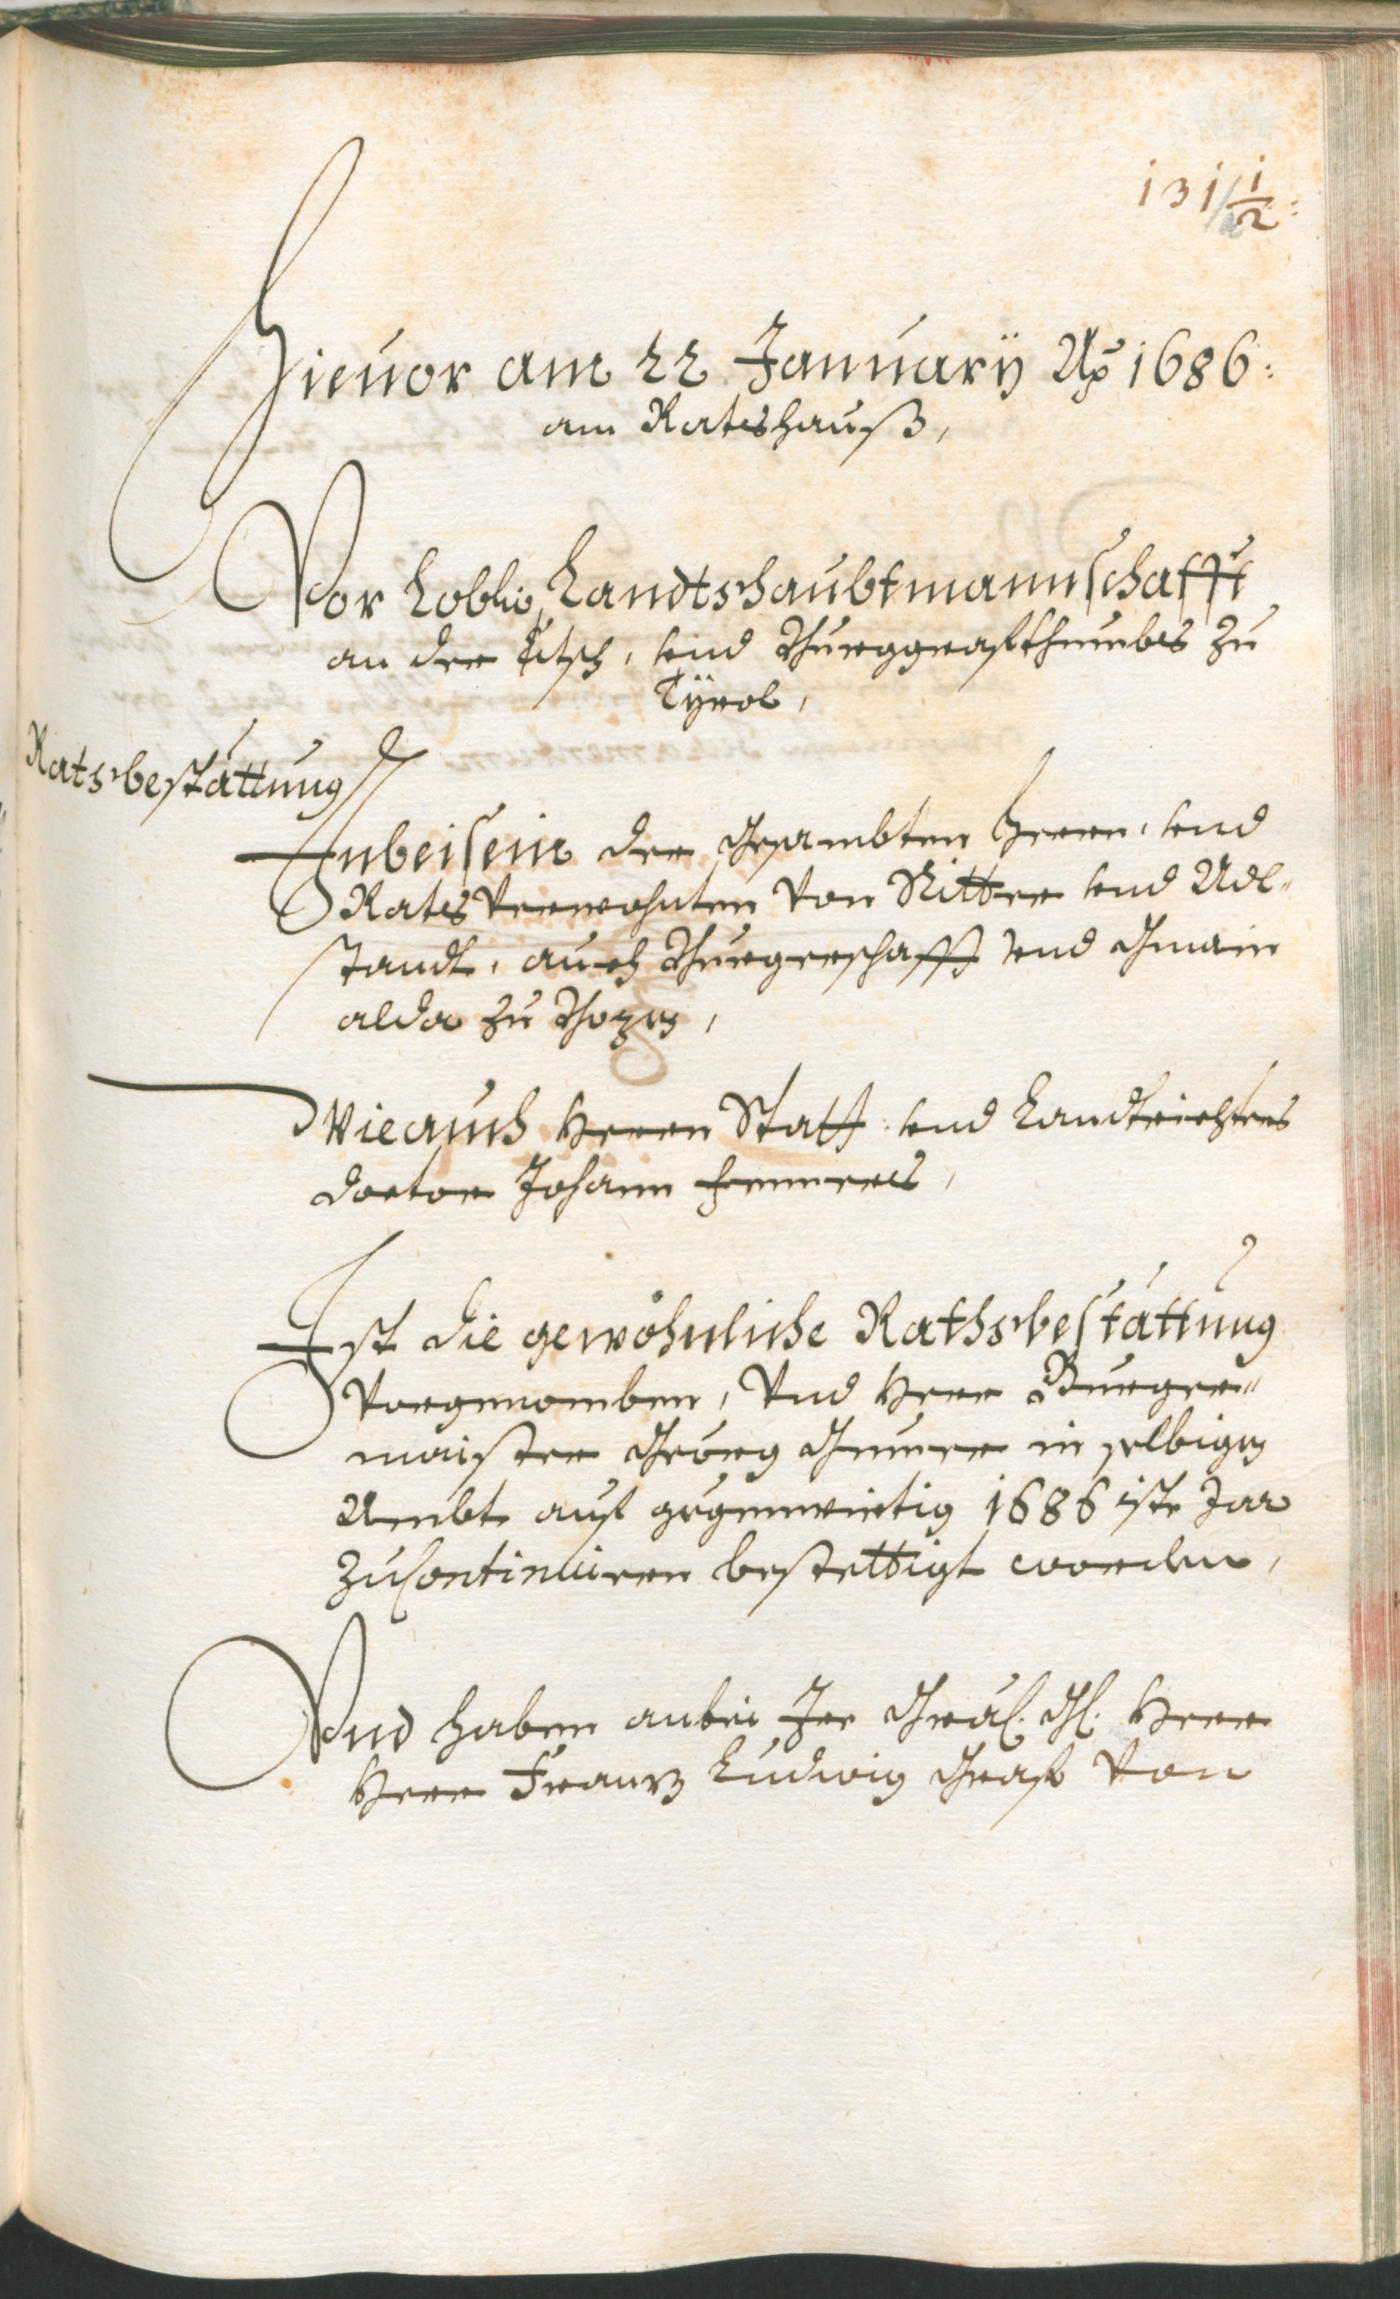 131 1/2:
Hieuor am 22 Januarÿ Ao 1686:
am Ratshauß,
Vor Loblio, Landtshaubtmannschafft
an der Etsch, vnd Burggrafthumbs zu
Tÿrol,
Ratsbestättung
Inbeisein der Gesambten Herrn, vnd
Rats Verwohnten Von Ritter vnd Adl"
standt, auch Burgerschafft vnd Gmain
alda zu Bozen,
Wieauch Herrn Statt: vnd Landtrichters
doctor Johann
Ist die gewöhnliche Rathsbestättung
Vorgenomben, Vnd Herr Burger"
maister Georg Gumer in selbigen
Ambt auf gegenwirtig 1686 iste Jar
zu Continuiren bestettigt worden,
Vnd haben anbei Ier Gräf: Gl: Herr
Herr Franz Ludwig Graf Von